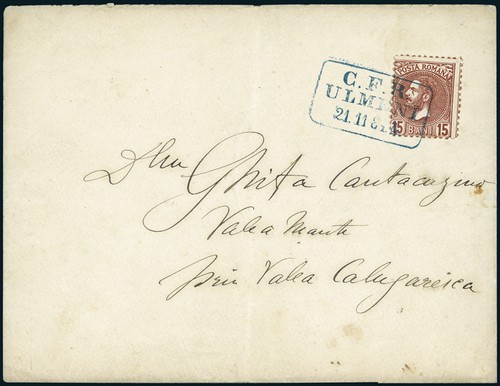 C. F. R.
ULMENI
21.11 81
POSTA ROMANA
15 BANI 15
Dlui Ghita Cantacuzino
Valea Mante
prin Valea Calugaresca